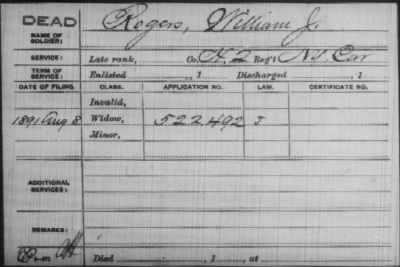 DEAD Rogers, William J.
NAME OF SOLDIER:
SERVICE: Late rank, Co. H. 2 Reg't NY Cav
TERM OF SERVICE: Enlisted , 1 Discharged , 1
DATE OF FILING. CLASS. APPLICATION NO. LAW. CERTIFICATE NO.
Invalid,
1891 Aug 8 Widow, 522492
Minor,
ADDITIONAL SERVICES:
REMARKS:
Died , 1 , at